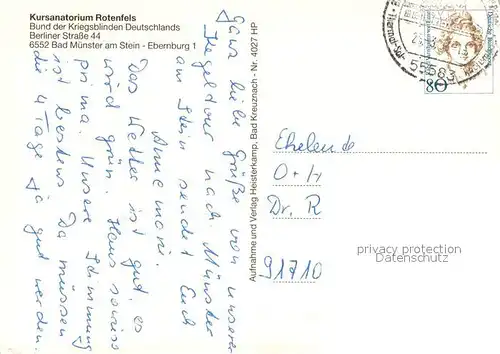 Kursanatorium Rotenfels
Bund der Kriegsblinden Deutschlands
Berliner Straße 44
6552 Bad Münster am Stein - Ebernburg 1
Ganz liebe Grüße von unserer
Kegeltour nach Münster
am Stein sendet Euch
Annemarie.
Das Wetter ist gut, es
wird grün. Haus sowieso
prima. Unsere Stimmung
ist bestens. Da müssen
die 4 Tage ja gut werden.
Aufnahme und Verlag Heisterkamp, Bad Kreuznach - Nr. 4027 HP
55583
80
Eheleute
O + H
Dr. R
91710
privacy protection
Datenschutz